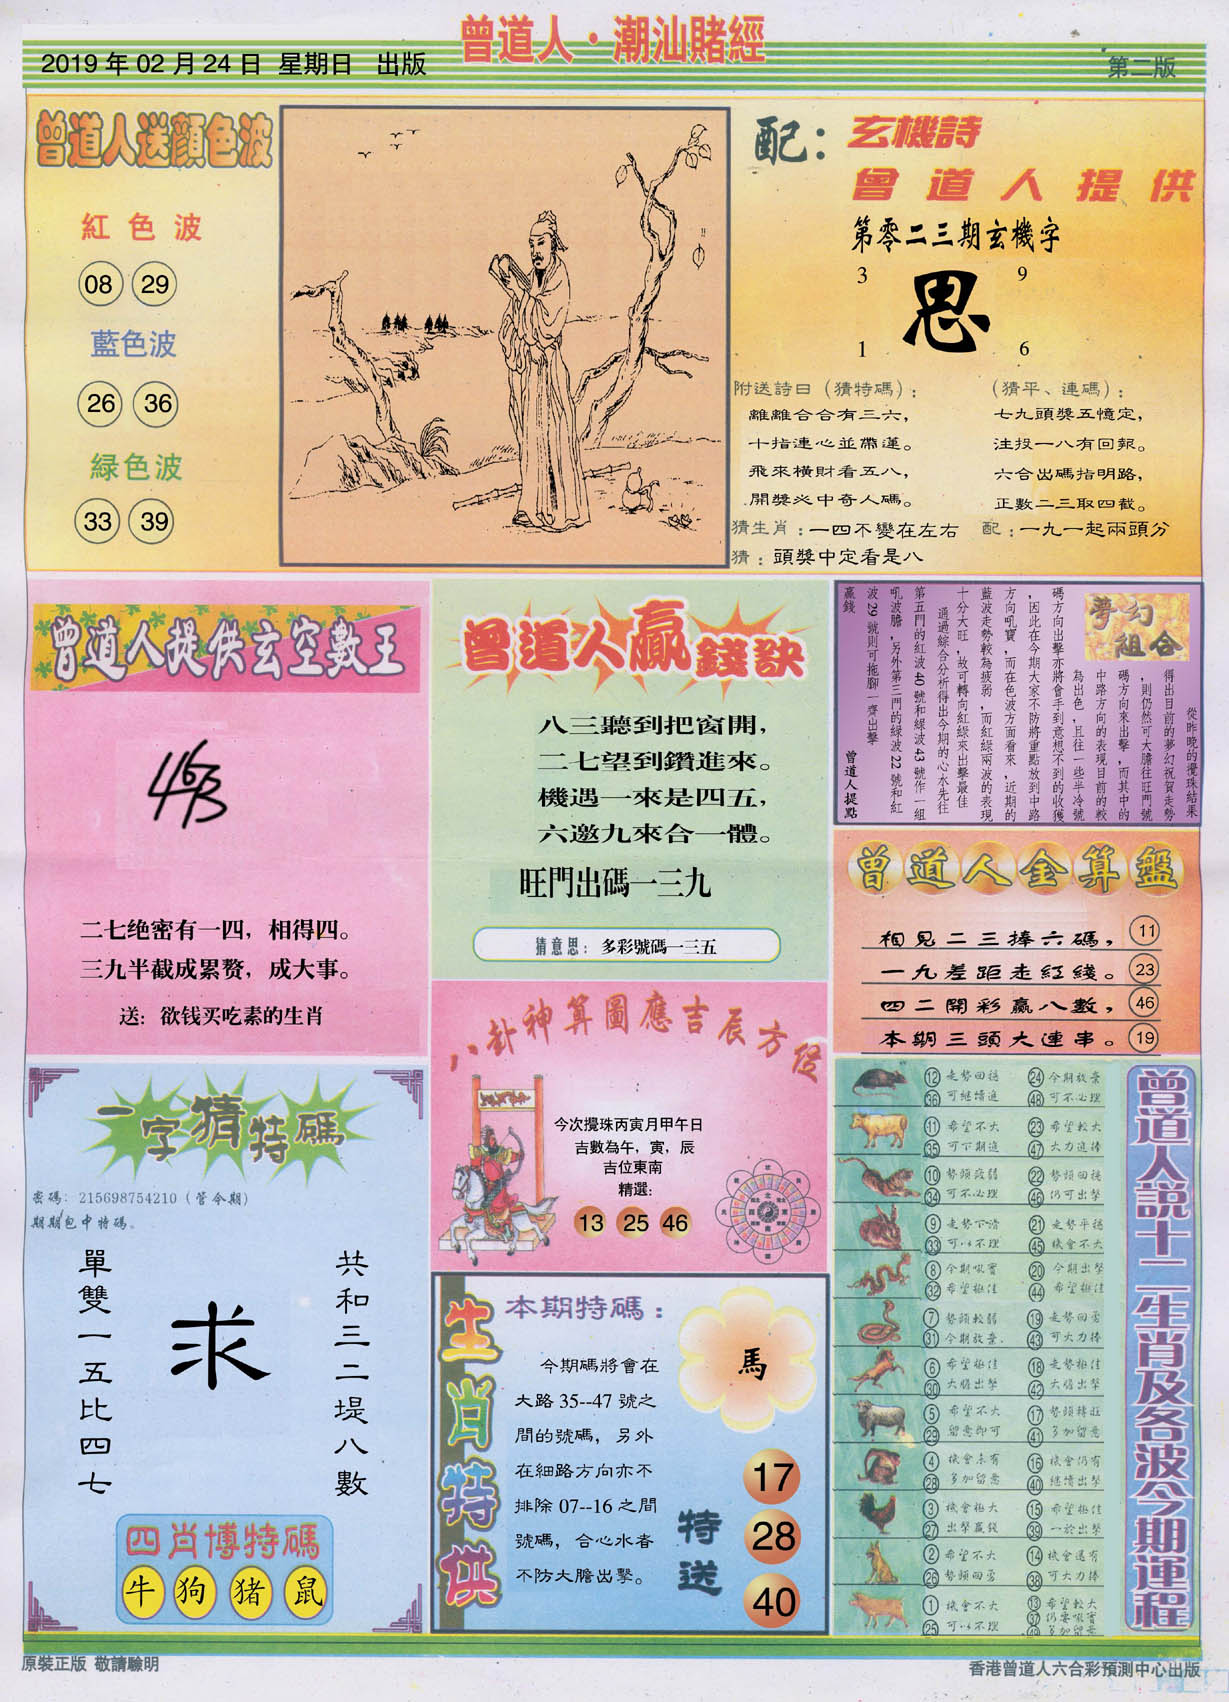 曾道人·潮汕賭經
2019 年 02 月 24 日 星期日 出版
第二版
曾道人送顏色波
紅色波
08 29
藍色波
26 36
緑色波
33 39
配：玄機詩
曾道人提供
第零二三期玄機字
3 9
思
1 6
附送詩曰（猜特碼）：
離離合合有三六，
十指連心並帶運。
飛來橫財看五八，
開獎必中奇人碼。
（猜平、連碼）：
七九頭獎五憶定，
注投一八有回報。
六合出碼指明路，
正數二三取四截。
猜生肖：一四不變在左右 配：一九一起兩頭分
猜：頭獎中定看是八
曾道人提供玄空數王
二七绝密有一四，相得四。
三九半截成累赘，成大事。
送：欲钱买吃素的生肖
曾道人贏錢訣
八三聽到把窗開，
二七望到鑽進來。
機遇一來是四五，
六邀九來合一體。
旺門出碼一三九
猜意思：多彩號碼一三五
夢幻組合
從昨晚的攪珠結果
得出目前的夢幻祝賀走勢
，則仍然可大膽往旺門號
碼方向來出擊，而其中的
中路方向的表現目前的較
為出色，且往一些半冷號
碼方向出擊亦將會手到意想不到的收獲
，因此在今期大家不防將重點放到中路
方向吼寶，而在色波方面看來，近期的
藍波走勢較為疲弱，而紅綠兩波的表現
十分大旺，故可轉向紅綠來出擊最佳
通過綜合分析得出今期的心水先往
第五門的紅波 40 號和綠波 43 號作一組
吼波膽，另外第三門的綠波 22 號和紅
波 29 號則可拖腳一齊出擊
贏錢
曾道人提點
曾道人金算盤
相見二三捧六碼， 11
一九差距走紅綫。 23
四二開彩贏八數， 46
本期三頭大連串。 19
一字猜特碼
密碼：215698754210（管今期）
期期包中特碼。
共和三二堤八數
求
單雙一五比四七
四肖博特碼
牛 狗 猪 鼠
八卦神算圖應吉辰方位
今次攪珠丙寅月甲午日
吉數為午，寅，辰
吉位東南
精選：
13 25 46
生肖特供
本期特碼：
馬
今期碼將會在
大路 35--47 號之
間的號碼，另外
在細路方向亦不
排除 07--16 之間
號碼，合心水者
不防大膽出擊。
特送
17
28
40
曾道人説十二生肖及各波今期運程
12 走勢回穩 24 今期放棄
36 可繼續進 48 可不必理
11 希望不大 23 希望較大
35 可下期進 47 大力進捧
10 勢頭疲弱 22 勢頭回穩
34 可不必理 46 仍可出擊
9 走勢下滑 21 走勢平穩
33 可以不理 45 機會不大
8 今期吼寶 20 今期出擊
32 希望極佳 44 希望極佳
7 勢頭較弱 19 走勢回勇
31 今期放棄. 43 可大力捧
6 希望極佳 18 走勢極佳
30 大膽出擊 42 大膽出擊
5 希望不大 17 勢頭轉旺
29 留意即可 41 多加留意
4 機會未有 16 機會仍有
28 多加留意 40 繼續出擊
3 機會極大 15 希望極佳
27 出擊贏錢 39 一於出擊
2 希望不大 14 機會還有
26 勢頭回勇 38 可大力捧
1 機會不大 13 希望較大
25 可以不理 37 仍要吼寶
49 多加留意
原裝正版 敬請驗明
香港曾道人六合彩預測中心出版